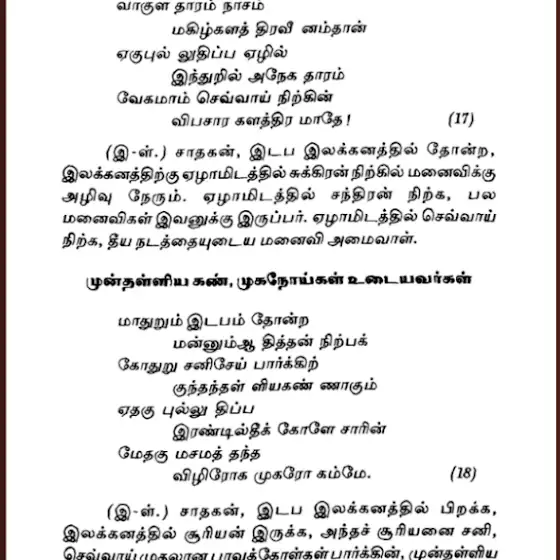 வாகுள தாரம் நாசம்
மகிழ்களத் திரவீ னம்தான்
ஏகுபுல் லுதிப்ப ஏழில்
இந்துறில் அநேக தாரம்
வேகமாம் செவ்வாய் நிற்கின்
விபசார களத்திர மாதே! (17)
(இ-ள்.) சாதகன், இடப இலக்கனத்தில் தோன்ற,
இலக்கனத்திற்கு ஏழாமிடத்தில் சுக்கிரன் நிற்கில் மனைவிக்கு
அழிவு நேரும். ஏழாமிடத்தில் சந்திரன் நிற்க, பல
மனைவிகள் இவனுக்கு இருப்பர். ஏழாமிடத்தில் செவ்வாய்
நிற்க, தீய நடத்தையுடைய மனைவி அமைவாள்.
முன்தள்ளிய கண், முகநோய்கள் உடையவர்கள்
மாதுறும் இடபம் தோன்ற
மன்னும்ஆ தித்தன் நிற்பக்
கோதுறு சனிசேய் பார்க்கிற்
குந்தந்தள் ளியகண் ணாகும்
ஏதகு புல்லு திப்ப
இரண்டில்தீக் கோளே சாரின்
மேதகு மசமத் தந்த
விழிரோக முகரோ கம்மே. (18)
(இ-ள்.) சாதகன், இடப இலக்கனத்தில் பிறக்க,
இலக்கனத்தில் சூரியன் இருக்க, அந்தச் சூரியனை சனி,
செவ்வாய் முதலான பாவக்கோள்கள் பார்க்கின், முன்தள்ளிய